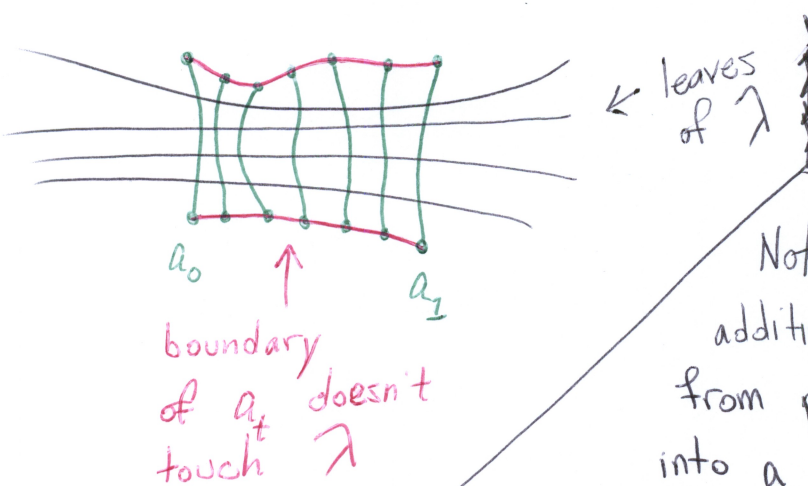 leaves
of λ
a₀
a₁
boundary
of aₜ doesn't
touch λ
Not
additi
from
into a